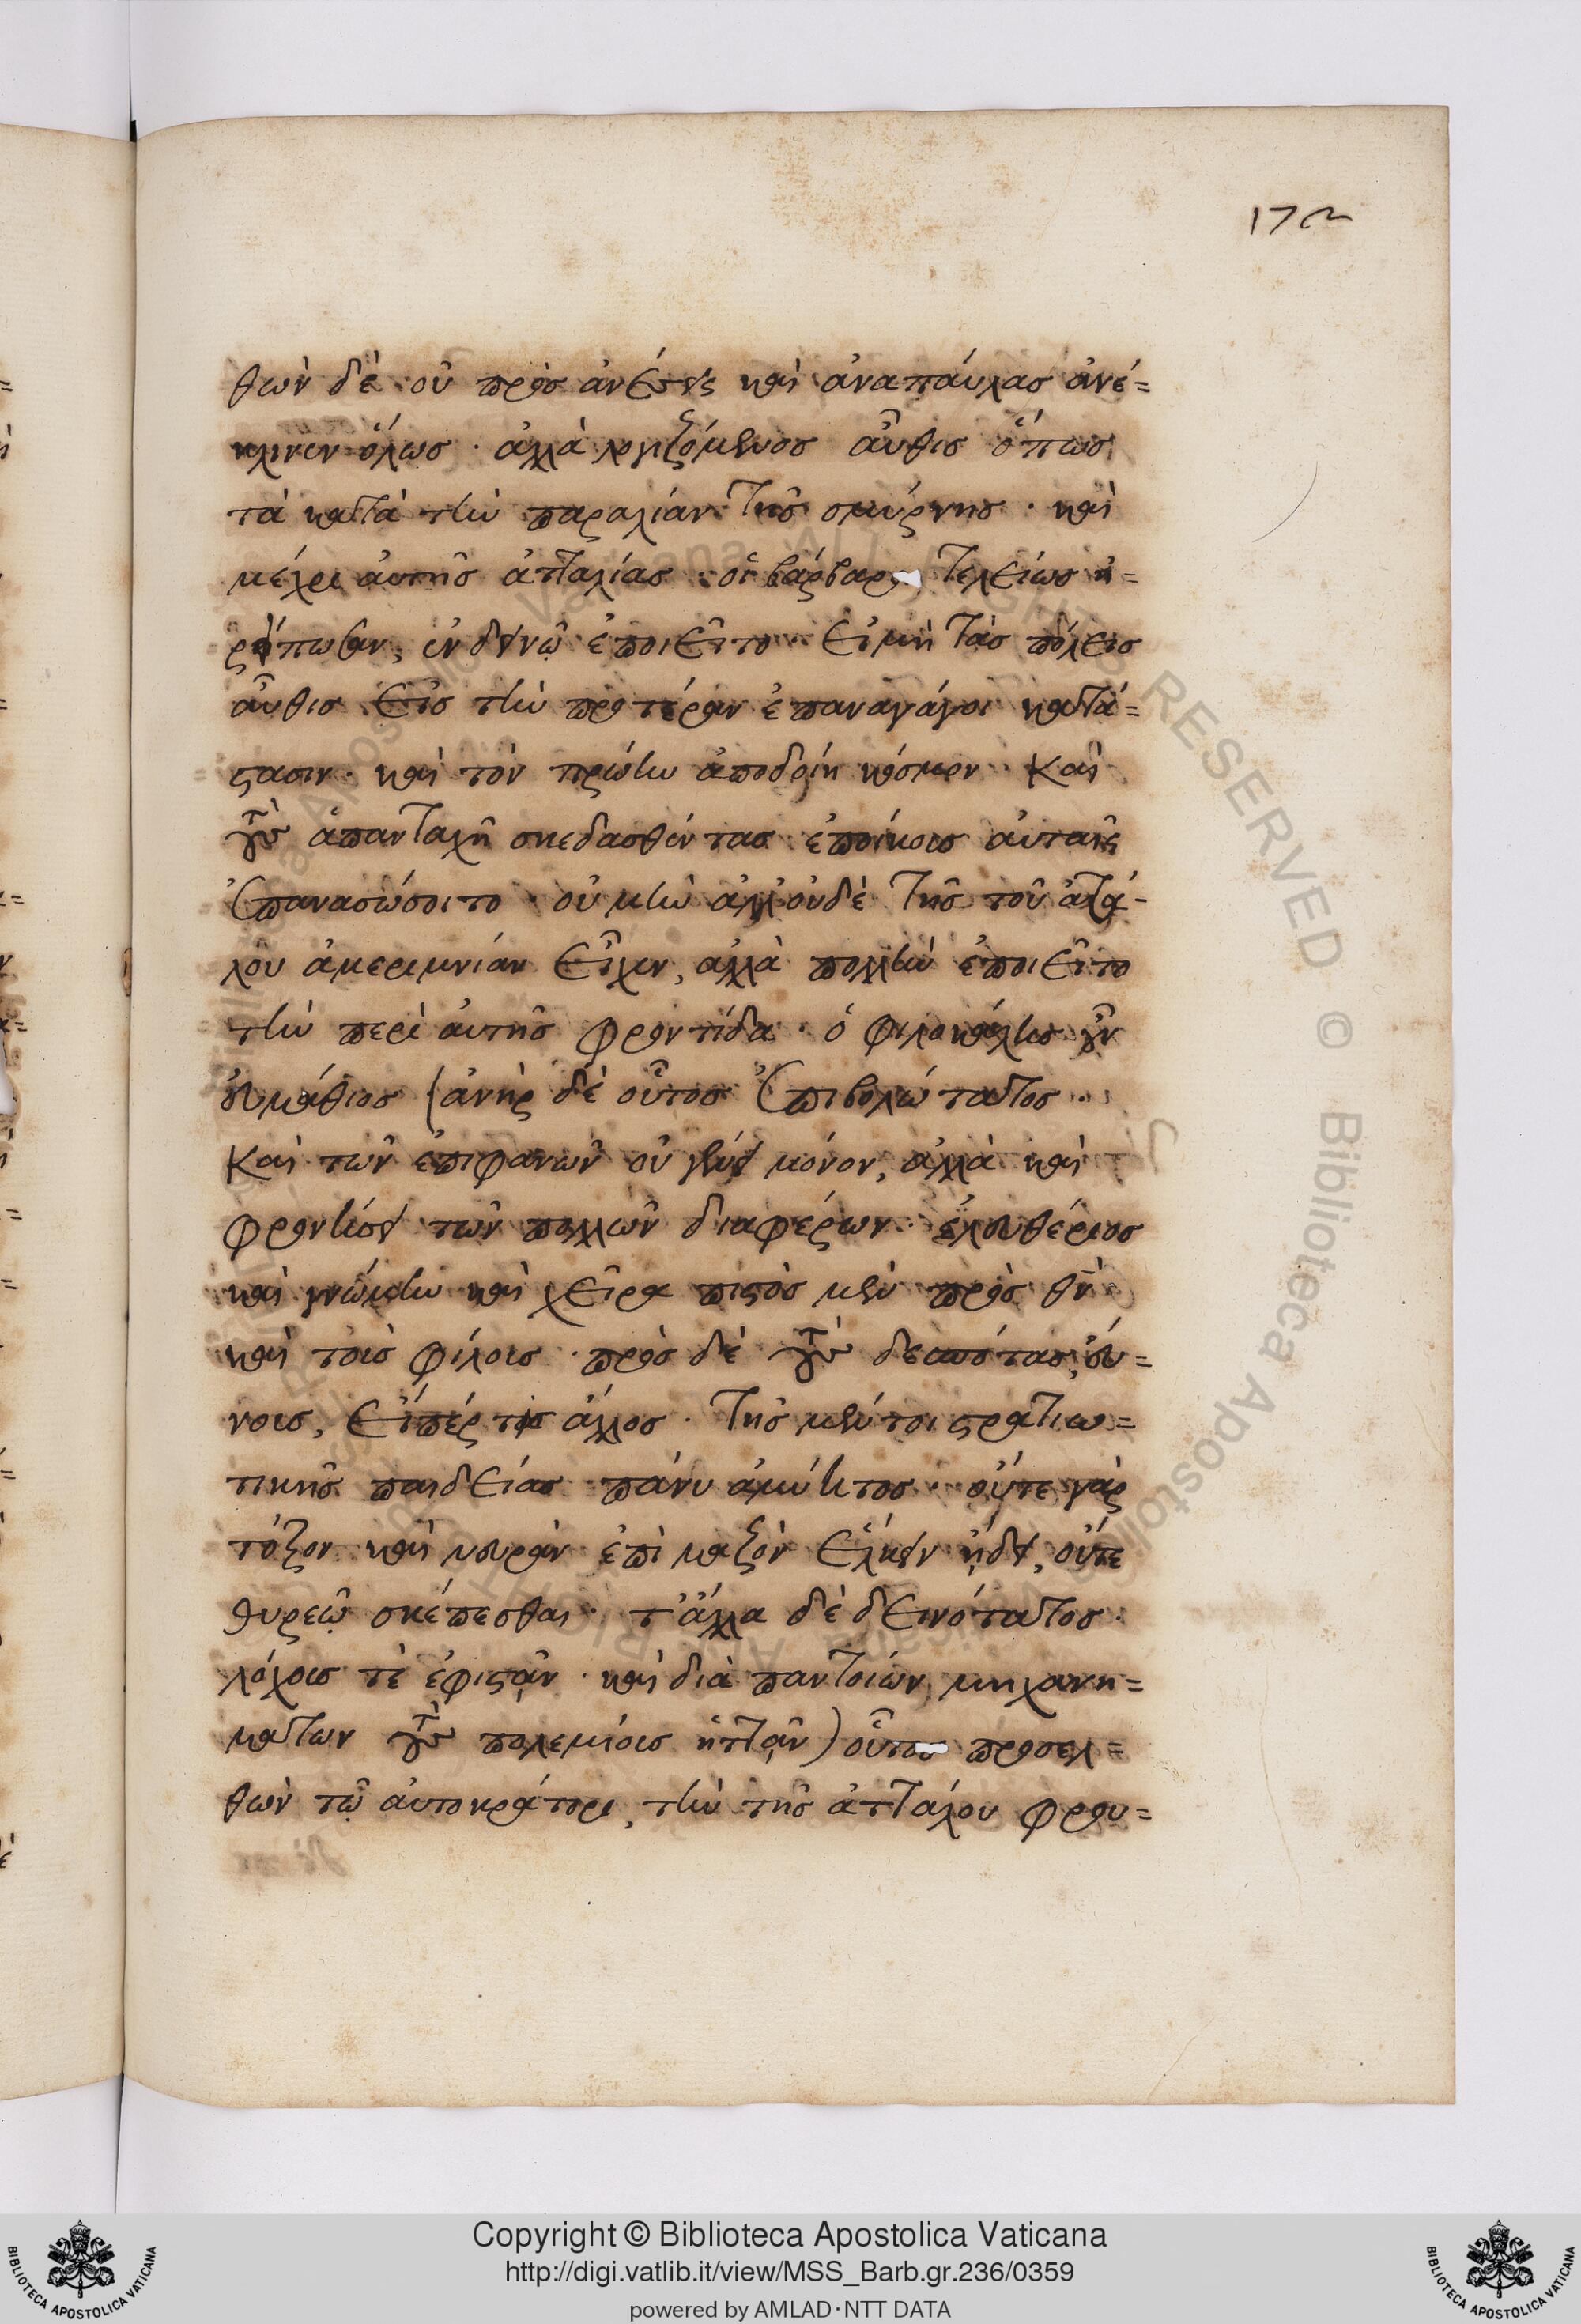 172
θων δὲ οὐ πρὸς ἀνέσεις καὶ ἀναπαύλας ἀνέ=
κλινεν ὅλως · ἀλλὰ λογιζόμενος αὖθις ὅπως
τὰ κατὰ τὴν παραλίαν τῆς σμύρνης · καὶ
μέχρι αὐτῆς ἀτταλίας οἱ βάρβαροι τελείως ἠ=
ρείπωσαν, ἐν δεινῷ ἐποιεῖτο εἰ μὴ τὰς πόλεις
αὖθις εἰς τὴν προτέραν ἐπαναγάγοι κατά=
στασιν · καὶ τὸν πρώην ἀποδοίη κόσμον · Καὶ
τοὺς ἁπανταχῆ σκεδασθέντας ἐποίκους αὐταῖς
ἐπανασώσοιτο · οὐ μὴν ἀλλ' οὐδὲ τῆς τοῦ ἀτά-
λου ἀμεριμνίαν εἶχεν, ἀλλὰ πολλὴν ἐποιεῖτο
τὴν περὶ αὐτῆς φροντίδα · ὁ φιλοκάλης οὖν
εὐμάθιος (ἀνὴρ δὲ οὗτος ἐπιβολώτατος ·
Καὶ τῶν ἐπιφανῶν οὐ γένει μόνον, ἀλλὰ καὶ
φρονήσει τῶν πολλῶν διαφέρων · ἐλευθέριος
καὶ γνώμην καὶ χεῖρα πιστὸς μὲν πρὸς θν
καὶ τοῖς φίλοις · πρὸς δὲ τοὺς δεσπότας, εὔ=
νοις, εἴπέρ τις ἄλλος · τῆς μέν τοι στρατιω=
τικῆς παιδείας πάνυ ἀμύητος · οὔτε γὰρ
τόξον καὶ νευρὰν ἐπὶ μαζὸν ἕλκειν ᾔδει, οὔτε
θυρεῷ σκέπεσθαι · τ' ἄλλα δὲ δεινότατος ·
λόχοις τὲ ἐφιστᾶν · καὶ διὰ παντοίων μηχανη=
μάτων τοὺς πολεμίοις ἡττᾶν) οὗτος προσελ=
θὼν τῷ αὐτοκράτορι, τὴν τῆς ἀττάλου φρου=
Copyright © Biblioteca Apostolica Vaticana
http://digi.vatlib.it/view/MSS_Barb.gr.236/0359
powered by AMLAD·NTT DATA